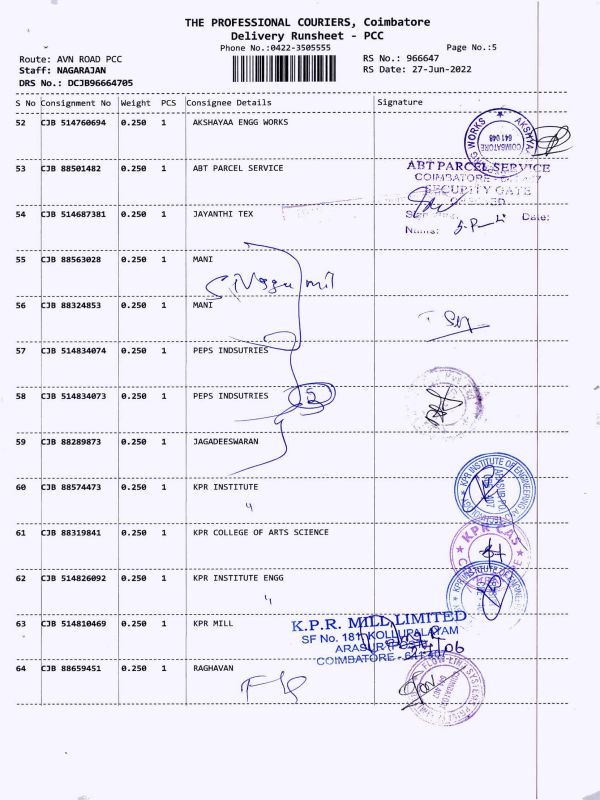 THE PROFESSIONAL COURIERS, Coimbatore
Delivery Runsheet - PCC
Phone No.:0422-3505555
Page No.:5
Route: AVN ROAD PCC
RS No.: 966647
Staff: NAGARAJAN
RS Date: 27-Jun-2022
DRS No.: DCJB96664705
S No Consignment No Weight PCS Consignee Details Signature
52 CJB 514760694 0.250 1 AKSHAYAA ENGG WORKS
WORKS ★ AKSHYA
COIMBATORE
641 048
53 CJB 88501482 0.250 1 ABT PARCEL SERVICE
ABT PARCEL SERVICE
SECURITY GATE
54 CJB 514687381 0.250 1 JAYANTHI TEX
Date:
Name:
55 CJB 88563028 0.250 1 MANI
56 CJB 88324853 0.250 1 MANI
57 CJB 514834074 0.250 1 PEPS INDSUTRIES
58 CJB 514834073 0.250 1 PEPS INDSUTRIES
5
59 CJB 88289873 0.250 1 JAGADEESWARAN
60 CJB 88574473 0.250 1 KPR INSTITUTE
KPR INSTITUTE OF ENGINEERING
61 CJB 88319841 0.250 1 KPR COLLEGE OF ARTS SCIENCE
KPR CAS
62 CJB 514826092 0.250 1 KPR INSTITUTE ENGG
63 CJB 514810469 0.250 1 KPR MILL
K.P.R. MILL LIMITED
SF No. 181, KOLLUPALAYAM
ARASUR POST
COIMBATORE - 641 407
64 CJB 88659451 0.250 1 RAGHAVAN